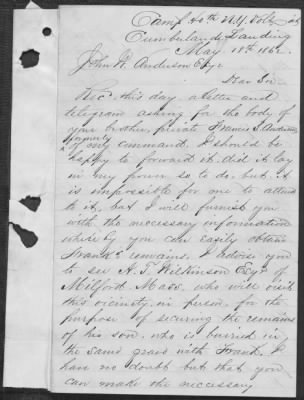 Camp 40th N.Y. Vols
Cumberland Landing
May. 18th 1862
John W. Anderson Esqr
Dear Sir
Rec. this day a letter and
telegram asking for the body of
your brother, private Francis S. Anderson
formerly
of my command. I should be
happy to forward it did it lay
in my power so to do, but it
is impossible for me to attend
to it, but I will furnish you
with the necessary information
whereby you can easily obtain
Franks remains. I advise you
to see A. J. Wilkinson Esqr of
Milford Mass. who will visit
this vicinity in person for the
purpose of securing the remains
of his son, who is burried in
the same grave with Frank. I
have no doubt but that you
can make the neccessary